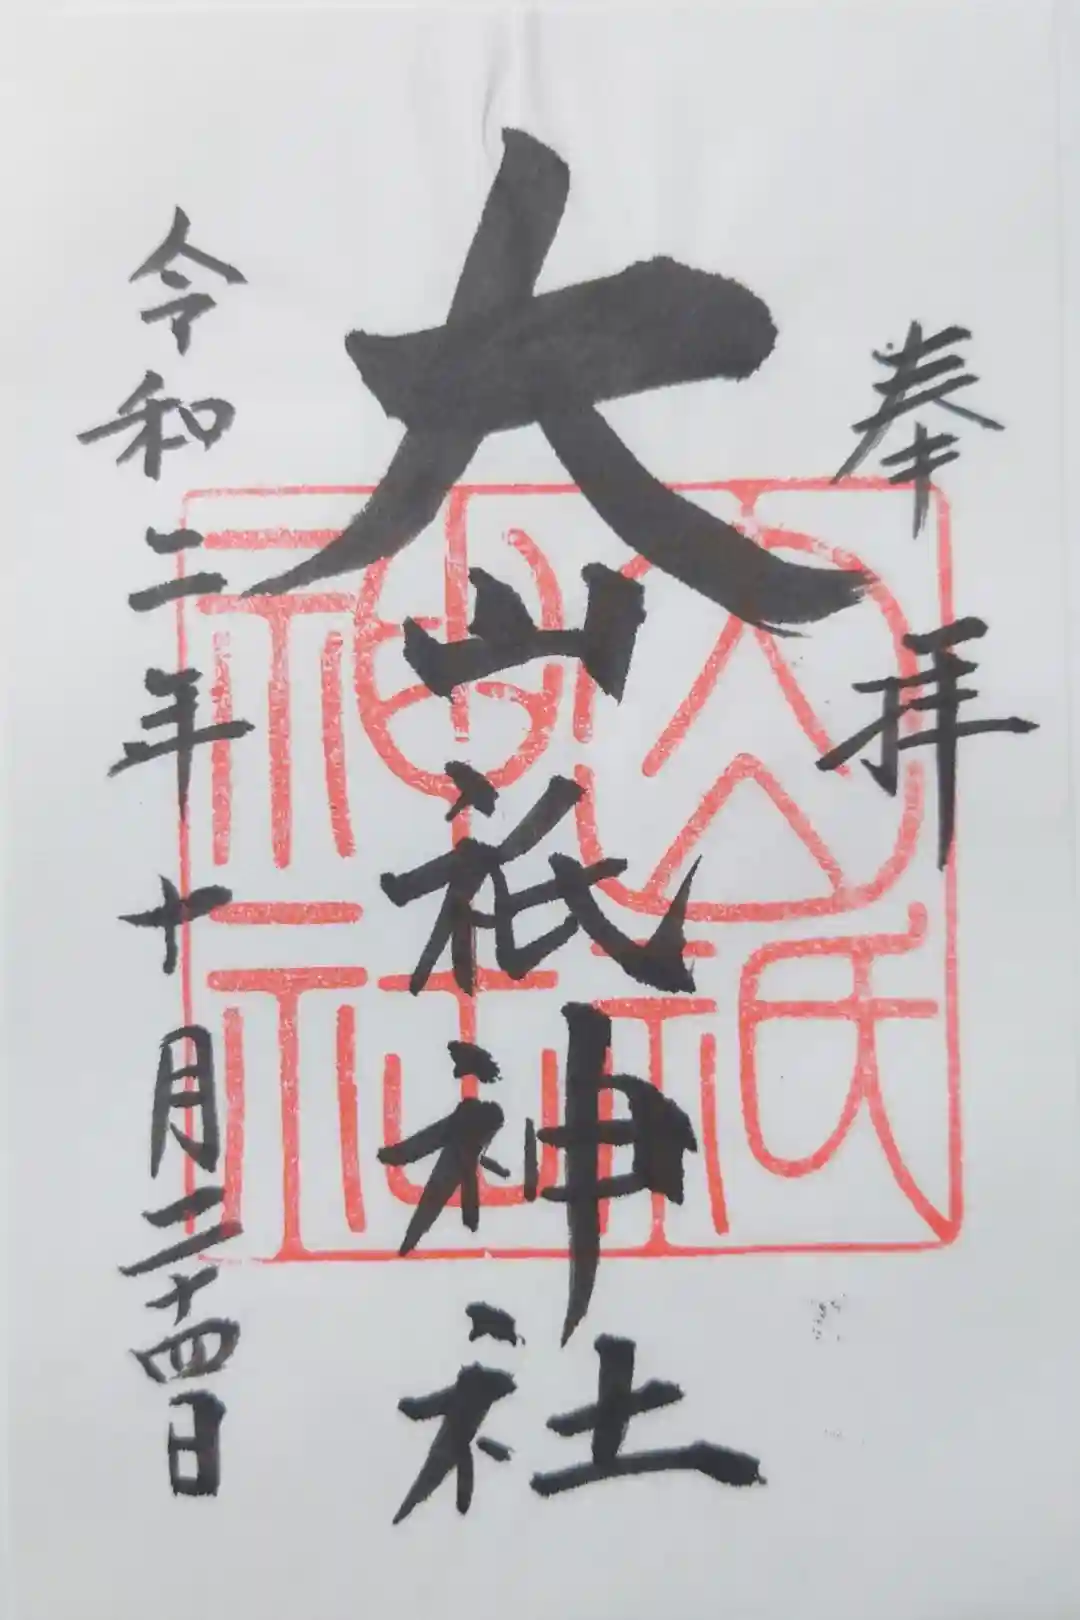 奉拝
大山祇神社
大山祇神社
令和二年十月二十四日